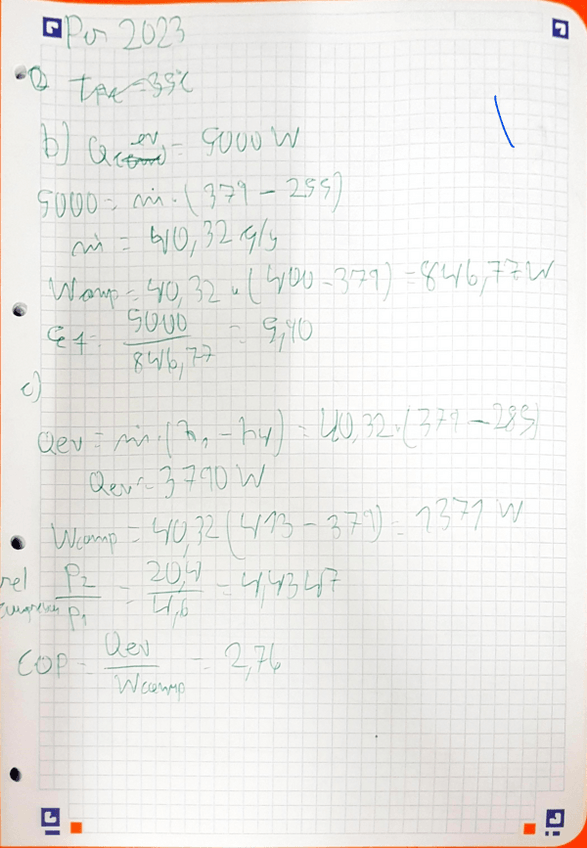 Per 2023
a) t = 35°C
b) Q ev = 5000 W
5000 = ṁ · (379 - 255)
ṁ = 40,32 g/s
Wcomp = 40,32 · (400 - 379) = 846,77 W
= 5000 / 846,77 = 5,90
c)
Qev = ṁ · (h1 - h4) = 40,32 · (379 - 285)
Qev = 3790 W
Wcomp = 40,32 (413 - 379) = 1371 W
rel compresion P2 / P1 = 20,4 / 4,6 = 4,4347
COP = Qev / Wcomp = 2,76